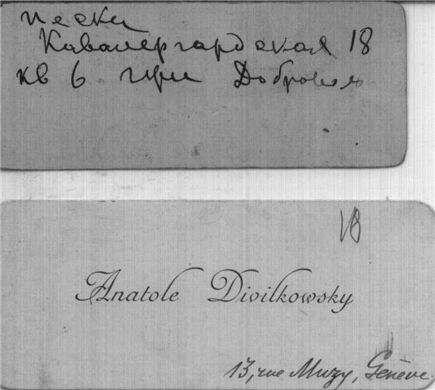 пески
Кавалергардская 18
кв 6.
18
Anatole Divilkowsky
13, rue Muzy, Genève.